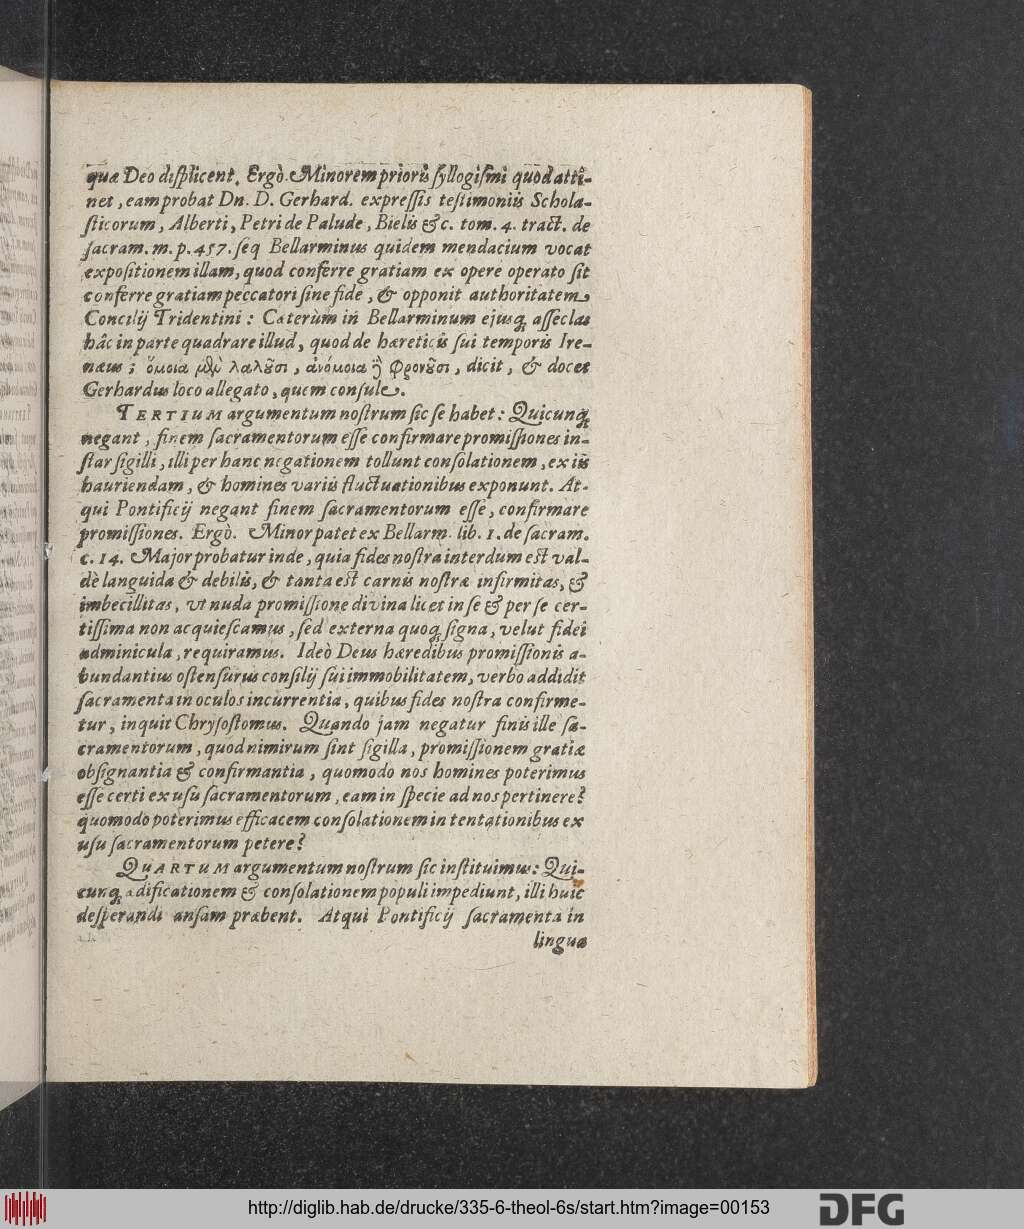 quæ Deo displicent. Ergò. Minorem prioris syllogismi quod atti-
net, eam probat Dn. D. Gerhard. expressis testimoniis Schola-
sticorum, Alberti, Petri de Palude, Bielis &c. tom. 4. tract. de
sacram. m. p. 457. seq Bellarminus quidem mendacium vocat
expositionem illam, quod conferre gratiam ex opere operato sit
conferre gratiam peccatori sine fide, & opponit authoritatem
Concilij Tridentini: Cæterùm in Bellarminum ejusq́; asseclas
hâc in parte quadrare illud, quod de hæreticis sui temporis Ire-
næus; ὅμοια μὲν λαλοῦσι, ἀνόμοια ἢ φρονοῦσι, dicit, & docet
Gerhardus loco allegato, quem consule.
TERTIUM argumentum nostrum sic se habet: Quicunq́;
negant, finem sacramentorum esse confirmare promissiones in-
star sigilli, illi per hanc negationem tollunt consolationem, ex iis
hauriendam, & homines variis fluctuationibus exponunt. At-
qui Pontificij negant finem sacramentorum esse, confirmare
promissiones. Ergò. Minor patet ex Bellarm. lib. 1. de sacram.
c. 14. Major probatur inde, quia fides nostra interdum est val-
dè languida & debilis, & tanta est carnis nostræ infirmitas, &
imbecillitas, ut nuda promissione divina licet in se & per se cer-
tissima non acquiescamus, sed externa quoq́; signa, velut fidei
adminicula, requiramus. Ideò Deus hæredibus promissionis a-
bundantius ostensurus consilij sui immobilitatem, verbo addidit
sacramenta in oculos incurrentia, quibus fides nostra confirme-
tur, inquit Chrysostomus. Quando jam negatur finis ille sa-
cramentorum, quod nimirum sint sigilla, promissionem gratiæ
obsignantia & confirmantia, quomodo nos homines poterimus
esse certi ex usu sacramentorum, eam in specie ad nos pertinere?
quomodo poterimus efficacem consolationem in tentationibus ex
usu sacramentorum petere?
QUARTUM argumentum nostrum sic instituimus: Qui-
cunq́; ædificationem & consolationem populi impediunt, illi huic
desperandi ansam præbent. Atqui Pontificij sacramenta in
lingua
http://diglib.hab.de/drucke/335-6-theol-6s/start.htm?image=00153
DFG